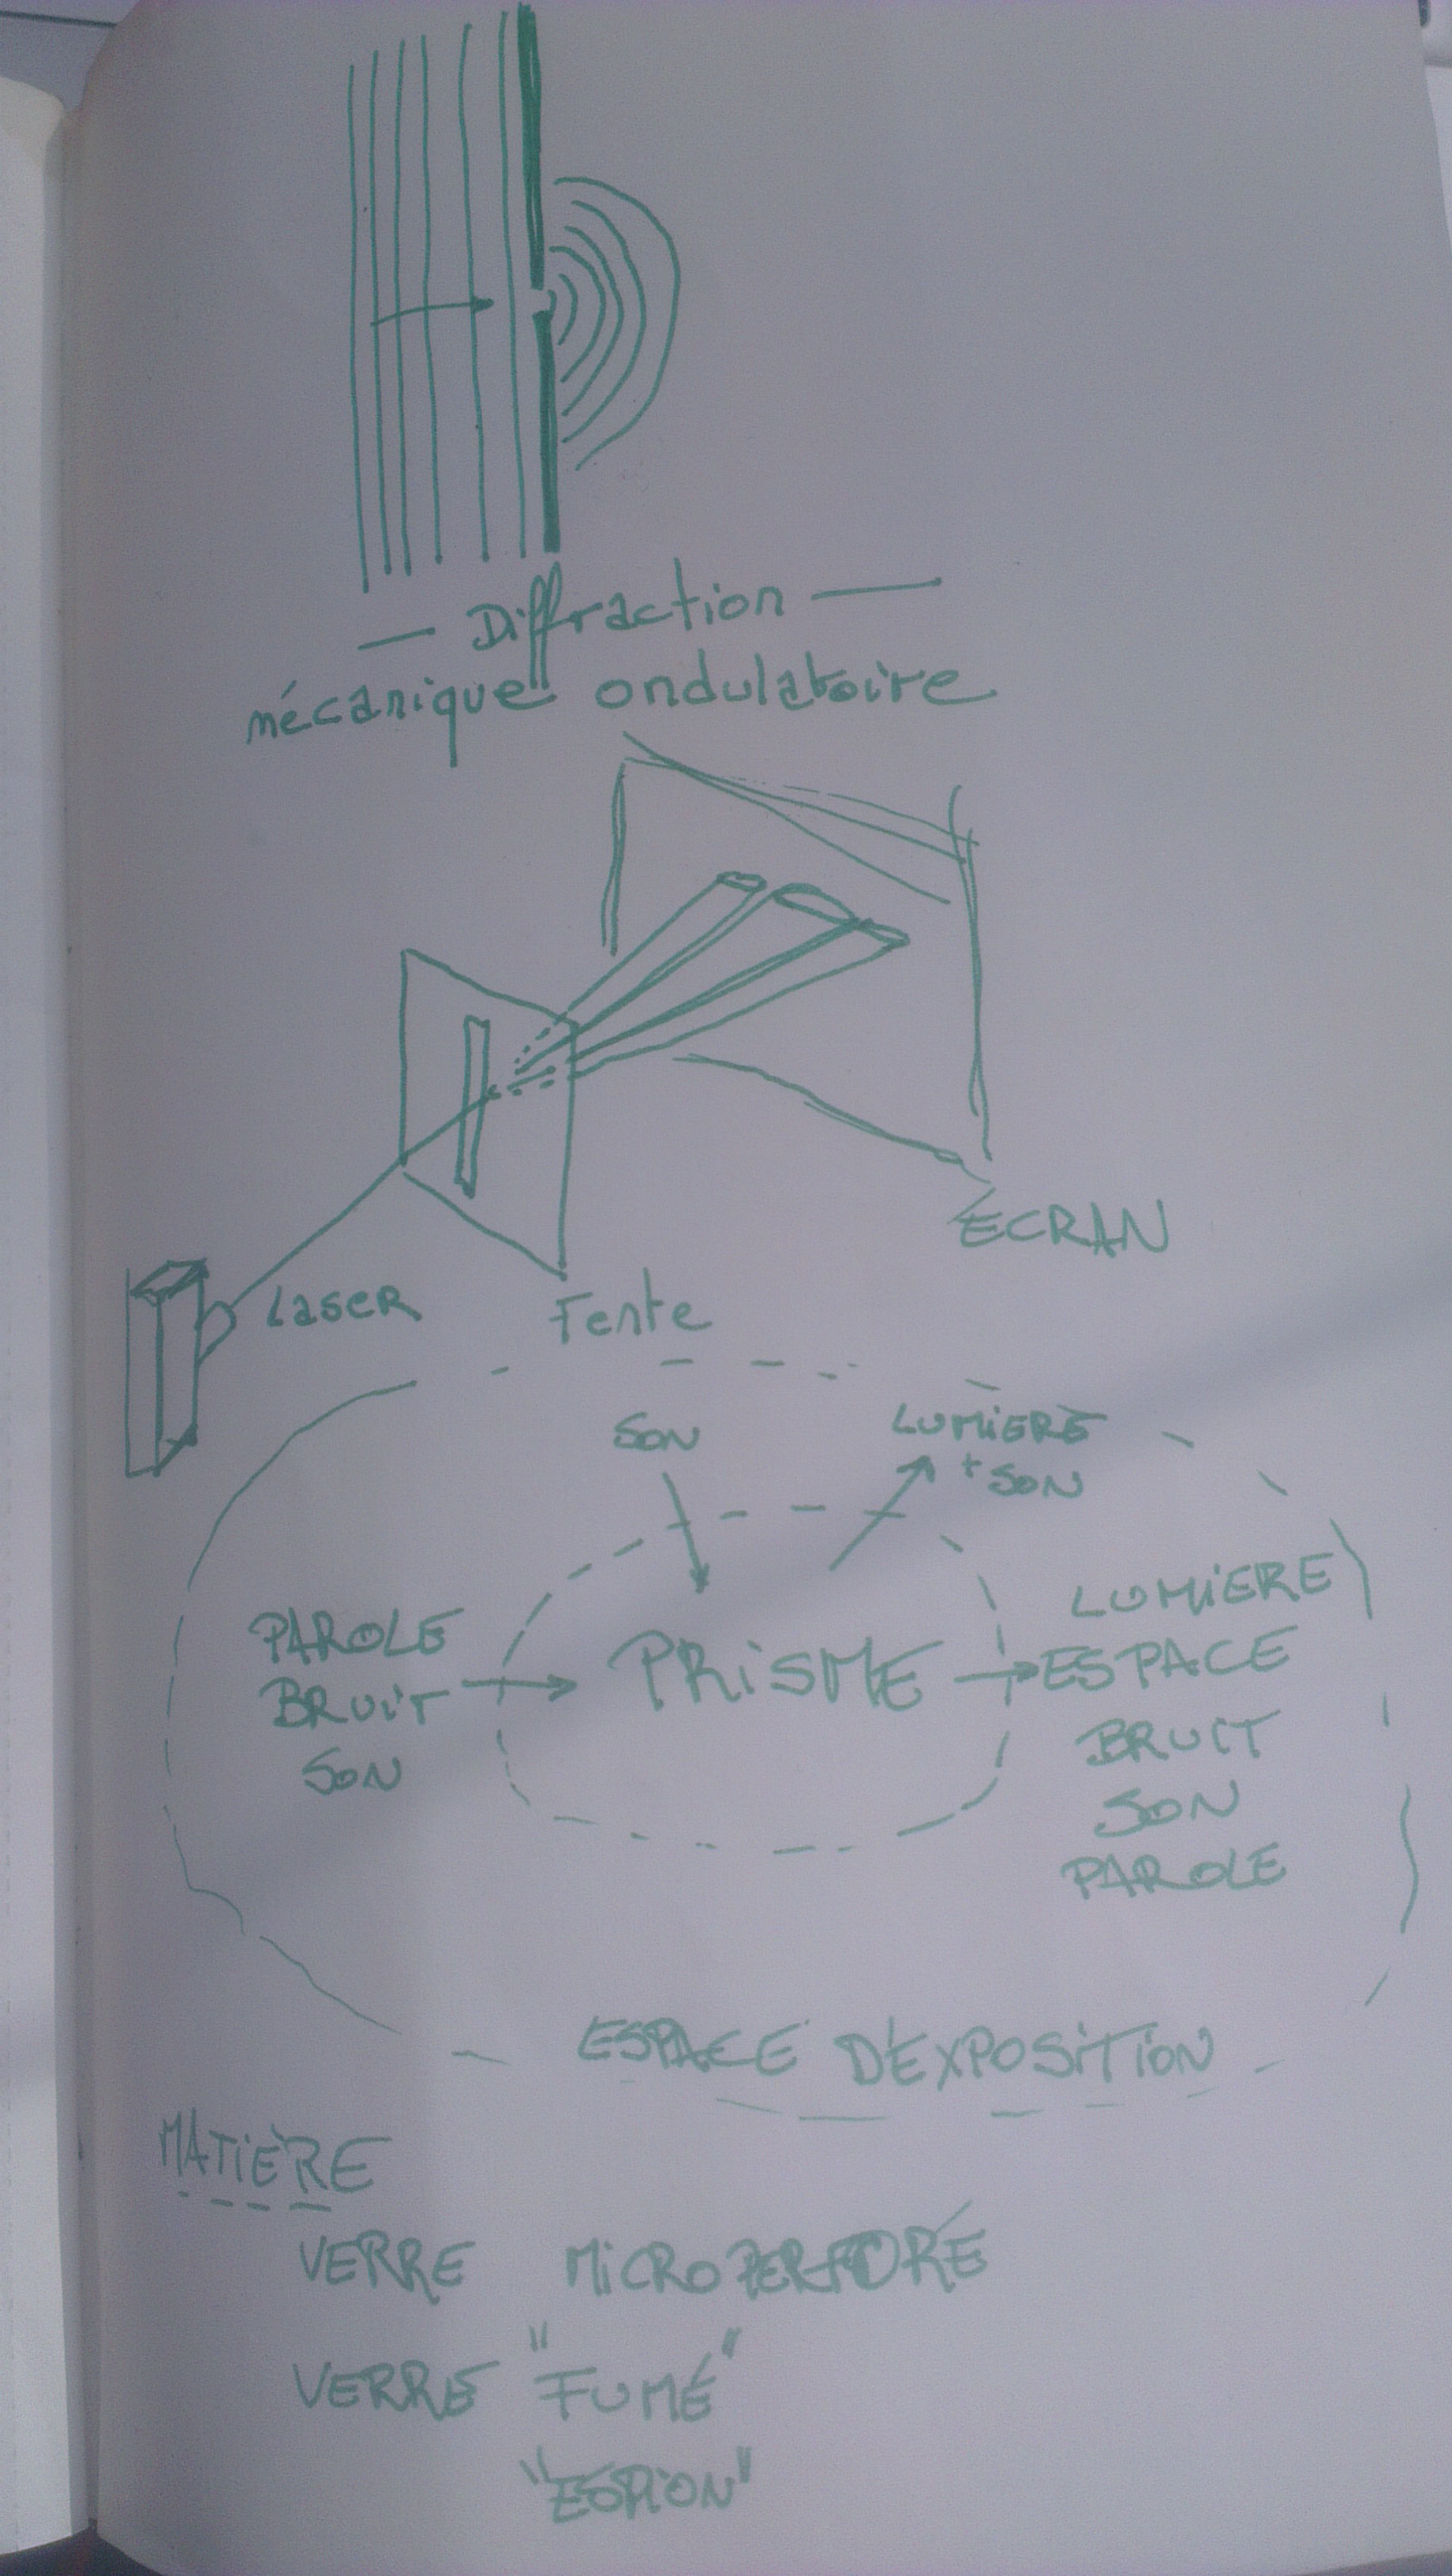 — Diffraction —
mécanique ondulatoire
ÉCRAN
Laser
Fente
SON
LUMIERE
+ SON
PAROLE
BRUIT
SON
PRISME
LUMIERE
ESPACE
BRUIT
SON
PAROLE
ESPACE D'EXPOSITION
MATIÈRE
VERRE MICROPERFORÉ
VERRE "FUMÉ"
"ESPION"